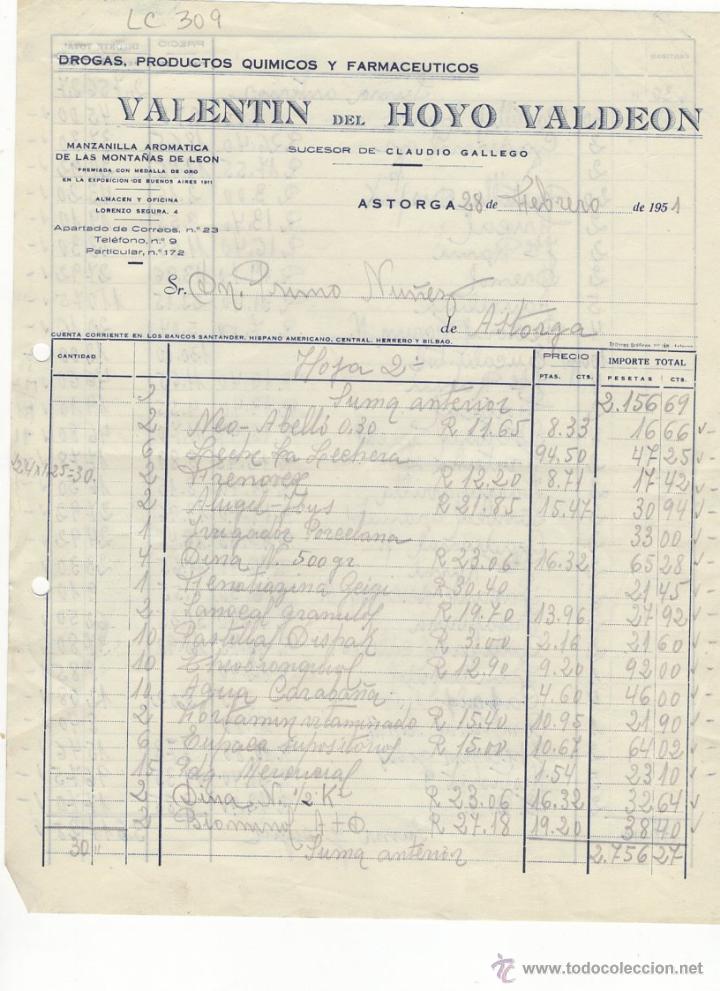 LC 309
DROGAS, PRODUCTOS QUIMICOS Y FARMACEUTICOS
VALENTIN DEL HOYO VALDEON
MANZANILLA AROMATICA
DE LAS MONTAÑAS DE LEON
PREMIADA CON MEDALLA DE ORO
EN LA EXPOSICION DE BUENOS AIRES 1911
ALMACEN Y OFICINA
LORENZO SEGURA, 4
Apartado de Correos, n.º 23
Teléfono, n.º 9
Particular, n.º 172
SUCESOR DE CLAUDIO GALLEGO
ASTORGA 28 de Febrero de 1951
Sr. Dn. Primo Nuñez
de Astorga
CUENTA CORRIENTE EN LOS BANCOS SANTANDER, HISPANO AMERICANO, CENTRAL, HERRERO Y BILBAO.
CANTIDAD PRECIO IMPORTE TOTAL
PTAS. CTS. PESETAS CTS.
Hoja 2ª
Suma anterior 2.156 69
2 Neo-Abelló 0,30 R 11.65 8.33 16 66
6 Leche La Lechera 94.50 47 25
24x1.25=30. 2 R 12.20 8.71 17 42
2 R 21.85 15.47 30 94
1 Irrigador Porcelana 33 00
4 Dina N. 500 gr R 23.06 16.32 65 28
1 Geigi R 30.40 21 45
2 granulos R 19.70 13.96 27 92
10 Pastilla R 3.00 2.16 21 60
10 R 12.90 9.20 92 00
10 Agua Carabaña 4.60 46 00
2 vitaminado R 15.40 10.95 21 90
6 supositorios R 15.00 10.67 64 02
15 1.54 23 10
2 Dina N. 1/2 K R 23.06 16.32 32 64
2 R 27.18 19.20 38 40
30 Suma anterior 2.756 27
www.todocoleccion.net